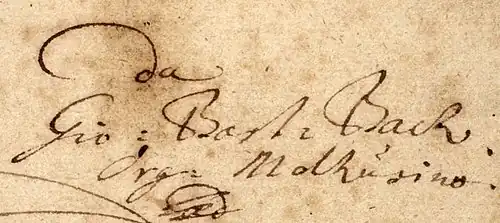 da
Gio: Bast: Bach.
Org: Molhusino: